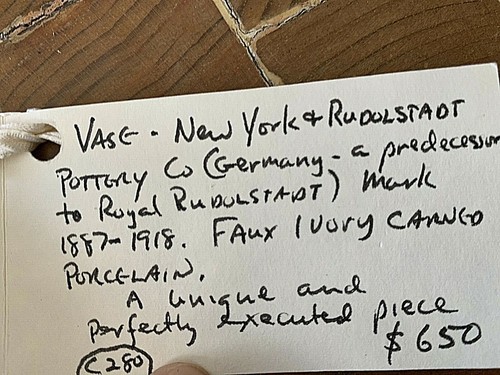 VASE - New York & RUDOLSTADT
POTTERY Co (Germany - a predecessor
to Royal RUDOLSTADT) mark
1887-1918. FAUX IVORY CARVED
PORCELAIN.
A unique and
perfectly executed piece
$650
C280